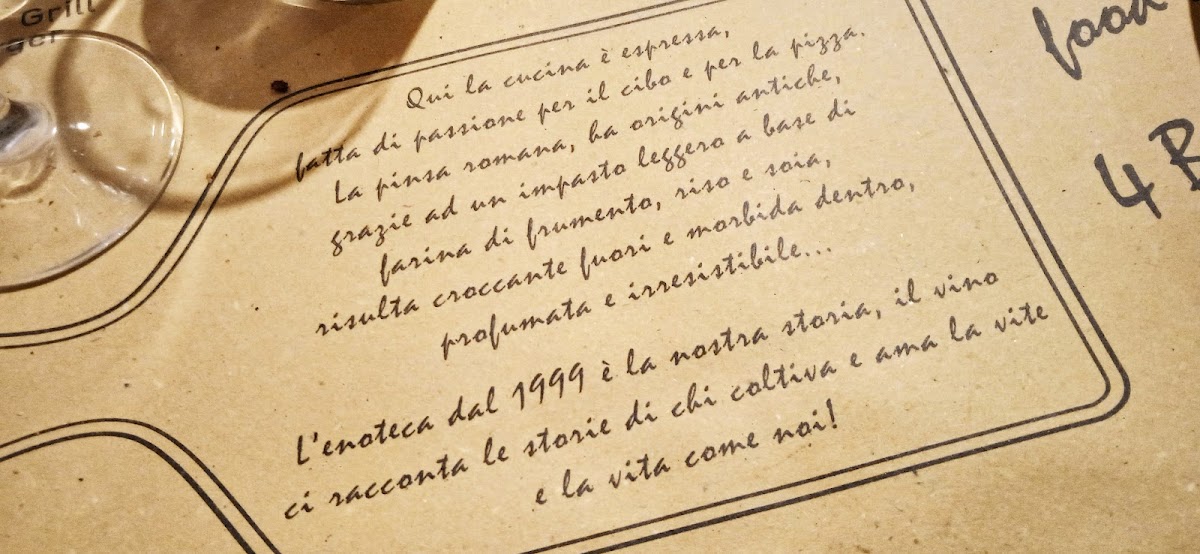 Grill
Qui la cucina è espressa,
fatta di passione per il cibo e per la pizza.
La pinsa romana, ha origini antiche,
grazie ad un impasto leggero a base di
farina di frumento, riso e soia,
risulta croccante fuori e morbida dentro,
profumata e irresistibile...
L'enoteca dal 1999 è la nostra storia, il vino
ci racconta le storie di chi coltiva e ama la vite
e la vita come noi!
food
4 B